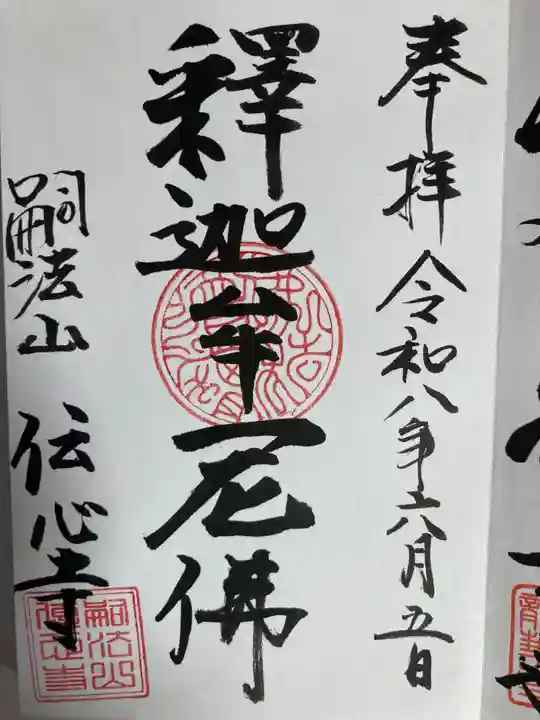 奉拝 令和八年六月五日
釋迦牟尼佛
嗣法山 伝心寺
嗣法山傳心寺